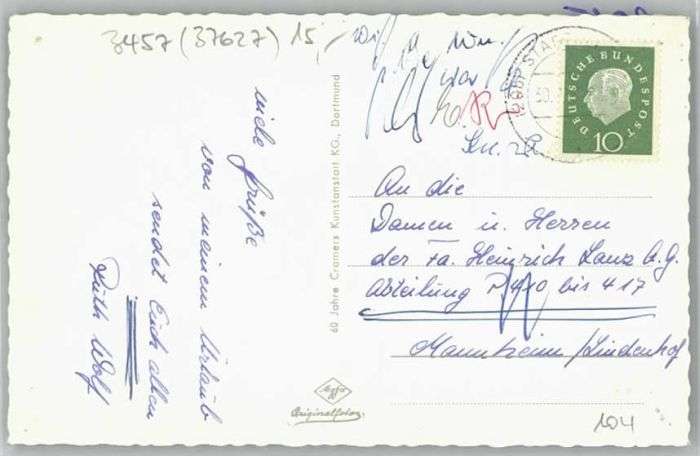 3457 (37627) 15,-
viele Grüße
von meinem Urlaub
sendet Euch allen
Ruth Wolf
60 Jahre Cramers Kunstanstalt KG., Dortmund
Agfa
Originalfoto
DEUTSCHE BUNDESPOST
10
An die
Damen u. Herren
der Fa. Heinrich Lanz A.G.
Abteilung P 410 bis 417
Mannheim/Lindenhof
104